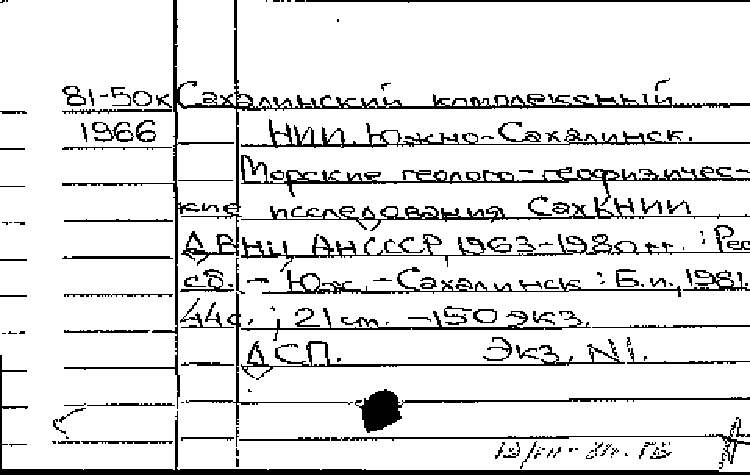 81-50к Сахалинский комплексный
1966 НИИ. Южно-Сахалинск.
Морские геолого-геофизичес-
кие исследования СахКНИИ
ДВНЦ АН СССР, 1963-1980 гг. : Реф
сб. - Юж.-Сахалинск : Б.и., 1981.
44с. ; 21 см. - 150 экз.
ДСП. Экз. N1.